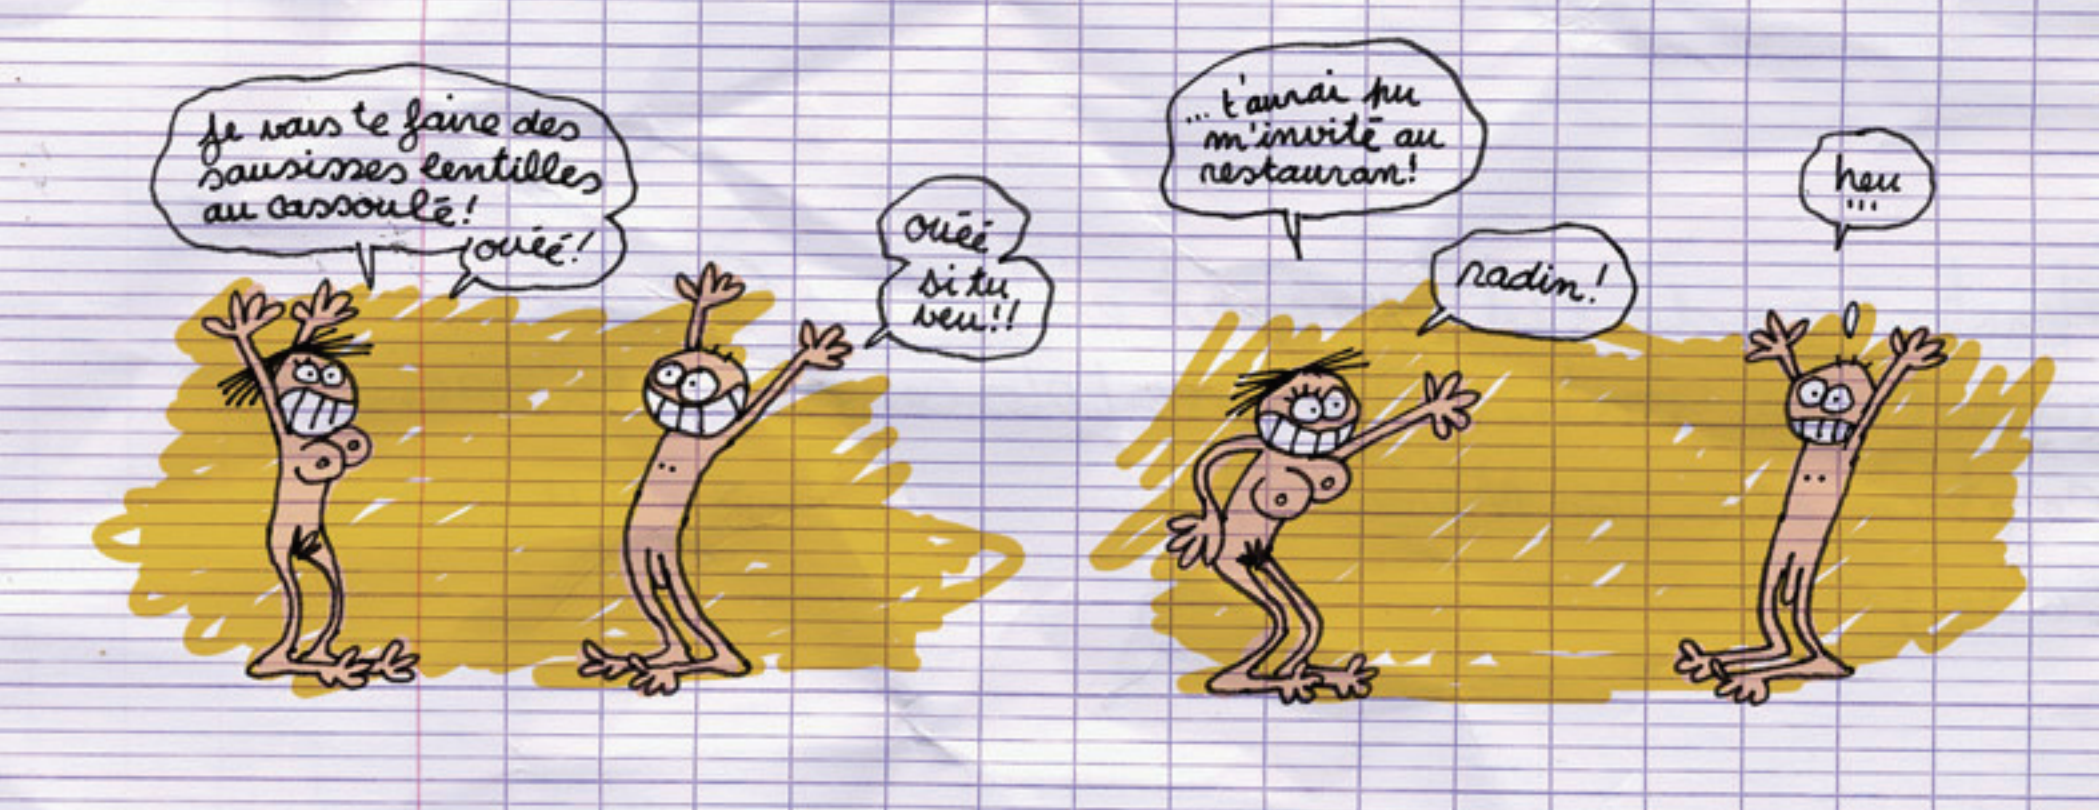 je vais te faire des
sausisses lentilles
au cassoulé!
ouéé!
ouéé
si tu
veu!!
... t'aurai pu
m'invité au
restauran!
radin!
heu
...